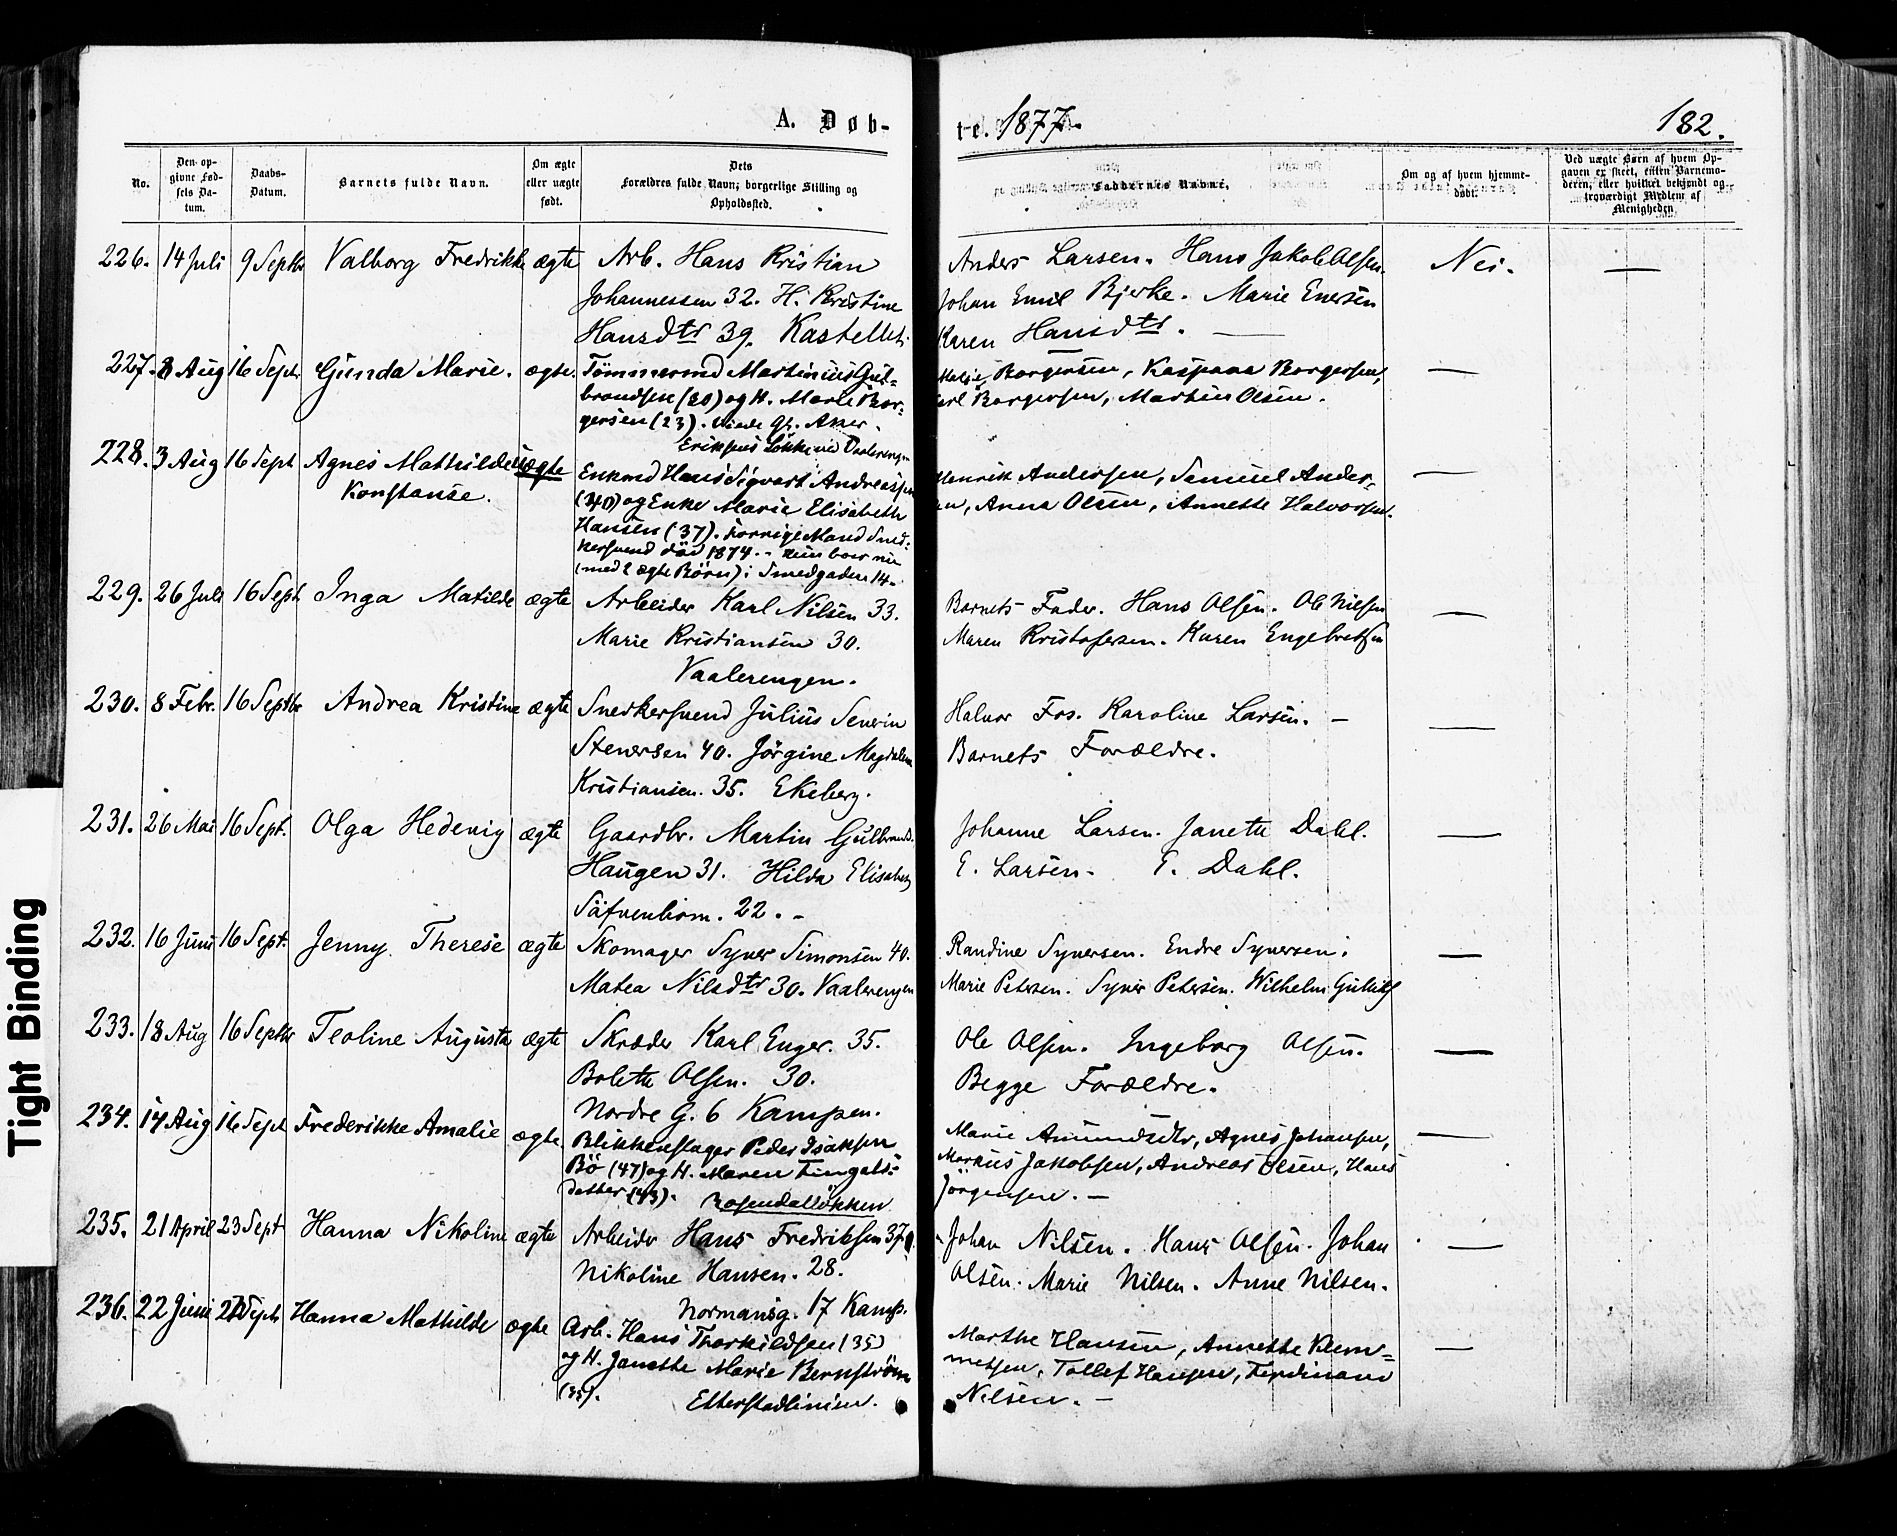 A. Døb-
te. 1877.
182.
No.
Den op-
givne Fød-
sels Da-
tum.
Daabs-
Datum.
Barnets fulde Navn.
Om ægte
eller uægte
født.
Dets
Forældres fulde Navn, borgerlige Stilling og
Opholdssted.
Faddernes Navne.
Om og af hvem hjemme-
døbt.
Ved uægte Børn af hvem Op-
gaven er skeet, enten Barnemo-
deren, eller hvilket bekjendt og
troværdigt Medlem af
Menigheden
226. 14 Juli 9 Septbr Valborg Fredrikke ægte Arb. Hans Kristian
Johannessen 32. H. Kristine
Hansdtr 39. Kastellet.
Anders Larsen. Hans Jakob Olsen.
Johan Emil Bjerke. Marie Enersen
Karen Hansdtr. —
Nei. —
227. 8 Aug 16 Sept. Gunda Marie. ægte. Tömmermd Martinius Gul-
brandsen (20) og H. Marie Bor-
gersen (23). Gl. Aker.
Borgersen, Kaspara Borgersen,
Borgersen, Martin Olsen.
—
228. 3 Aug 16 Sept Agnes Mathilde uægte
Konstanse.
Eriksens Løkke ved Vaalerengen
Enkemd Hans Sigvart Andreassen
(40) og Enke Marie Elisabeth
Hansen (37). Forrige Mand Sned-
kersvend död 1874. - Hun boer nu
(med 2 ægte Børn) i Smedgaden 14.
Henrik Andersen, Samuel Ander-
en, Anna Olsen, Annette Halvorsen.
—
229. 26 Juli 16 Sept Inga Matilde ægte Arbeider Karl Nilsen 33.
Marie Kristiansen 30.
Vaalerengen.
Barnets Fader. Hans Olsen. Ole Nilsen
Maren Kristofersen. Karen Engebretsen
—
230. 8 Febr. 16 Septbr Andrea Kristine ægte Snedkersvend Julius Severin
Stenersen 40. Jørgine Magdalena
Kristiansen. 35. Ekeberg.
Halvor Fos. Karoline Larsen. —
Barnets Forældre.
—
231. 26 Mai 16 Sept. Olga Hedevig ægte Gaardbr. Martin Gulbrands.
Haugen 31. Hilda Elisabeth
Säfvenbom. 22. -
Johanne Larsen. Janette Dahl.
E. Larsen. E. Dahl.
—
232. 16 Juni 16 Sept. Jenny Therese ægte Skomager Syver Simonsen 40.
Matea Nilsdtr 30. Vaalerengen
Randine Syversen. Endre Syversen.
Marie Petersen. Syver Petersen. Wilhelm
—
233. 18 Aug 16 Septbr Teoline Augusta ægte Skræder Karl Enger. 35.
Bolette Olsen. 30.
Nordre G. 6 Kampen.
Ole Olsen. Ingeborg Olsen.
Begge Forældre.
—
234. 14 Aug 16 Sept Frederikke Amalie ægte Blikkenslager Peder Isaksen
Bö (47) og H. Maren Tingals-
datter (43). Rosendalløkken
Marie Amundsdtr, Agnes Johansen,
Markus Jakobsen, Andreas Olsen, Hans
Jörgensen. —
—
235. 21 April 23 Sept Hanna Nikoline ægte Arbeider Hans Fredriksen 37.
Nikoline Hansen. 28.
Normansg. 17 Kamp.
Johan Nilsen. Hans Olsen. Johan
Olsen. Marie Nilsen. Anne Nilsen.
—
236. 22 Juni Sept Hanna Mathilde ægte Arb. Hans Thorkildsen (35)
og H. Janette Marie Bernström
(35). Etterstadlinien.
Marthe Hansen, Annette Klem-
metsen, Tollef Hansen, Ferdinand
Nilsen. —
—
Tight Binding